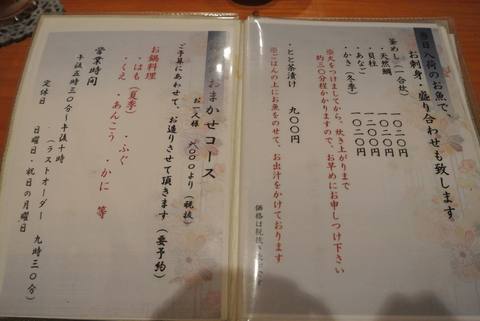 当日入荷のお魚で、
お刺身・盛り合わせも致します
釜めし(一合炊)
・天然鯛 一〇二〇
・貝柱 一二〇〇
・あなご 一二〇〇
・かき(冬季) 一〇二〇
※火をつけましてから、炊き上がりまで
約三〇分程かかりますので、お早めにお申しつけ下さい
・とと茶漬け 九〇〇円
※ごはんの上にお魚をのせて、お出汁をかけております
価格は税抜き
おまかせコース
お一人様 〇〇〇より(税抜)
ご予算にあわせて、お造りさせて頂きます(要予約)
お鍋料理
・はも(夏季) ・ふぐ
・くえ ・あんこう ・かに 等
営業時間
午後五時三〇分~午後十時
(ラストオーダー 九時三〇分)
定休日 日曜日・祝日の月曜日